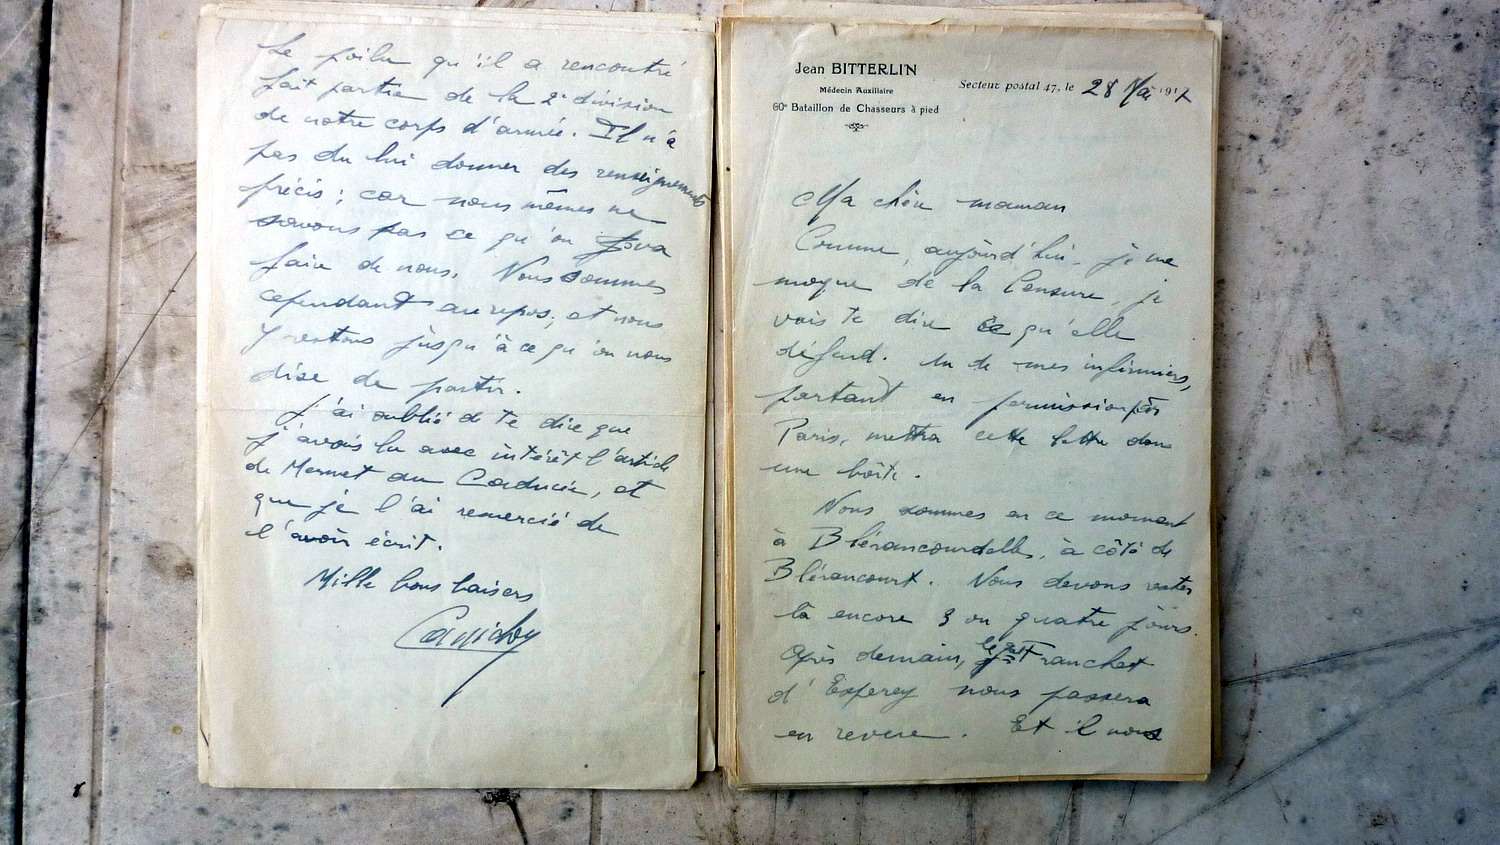 Le poilu qu'il a rencontré
fait partie de la 2e division
de notre corps d'armée. Il n'a
pas du lui donner des renseignements
précis; car nous mêmes ne
savons pas ce qu'on va
faire de nous. Nous sommes
cependant au repos, et nous
y restons jusqu'à ce qu'on nous
dise de partir.
J'ai oublié de te dire que
j'avais lu avec intérêt l'article
de Mermet au Caducée, et
que je l'ai remercié de
l'avoir écrit.
Mille bons baisers
Jean BITTERLIN
Médecin Auxiliaire
60e Bataillon de Chasseurs à pied
Secteur postal 47, le 28 Mai 1917
Ma chère maman
Comme, aujourd'hui, je me
moque de la Censure, je
vais te dire ce qu'elle
défend. Un de mes infirmiers,
partant en permission pour
Paris, mettra cette lettre dans
une boîte.
Nous sommes en ce moment
à Blérancourdelle, à côté de
Blérancourt. Nous devons rester
là encore 3 ou quatre jours.
Après demain, le gal Franchet
d'Esperey nous passera
en revue. Et il nous